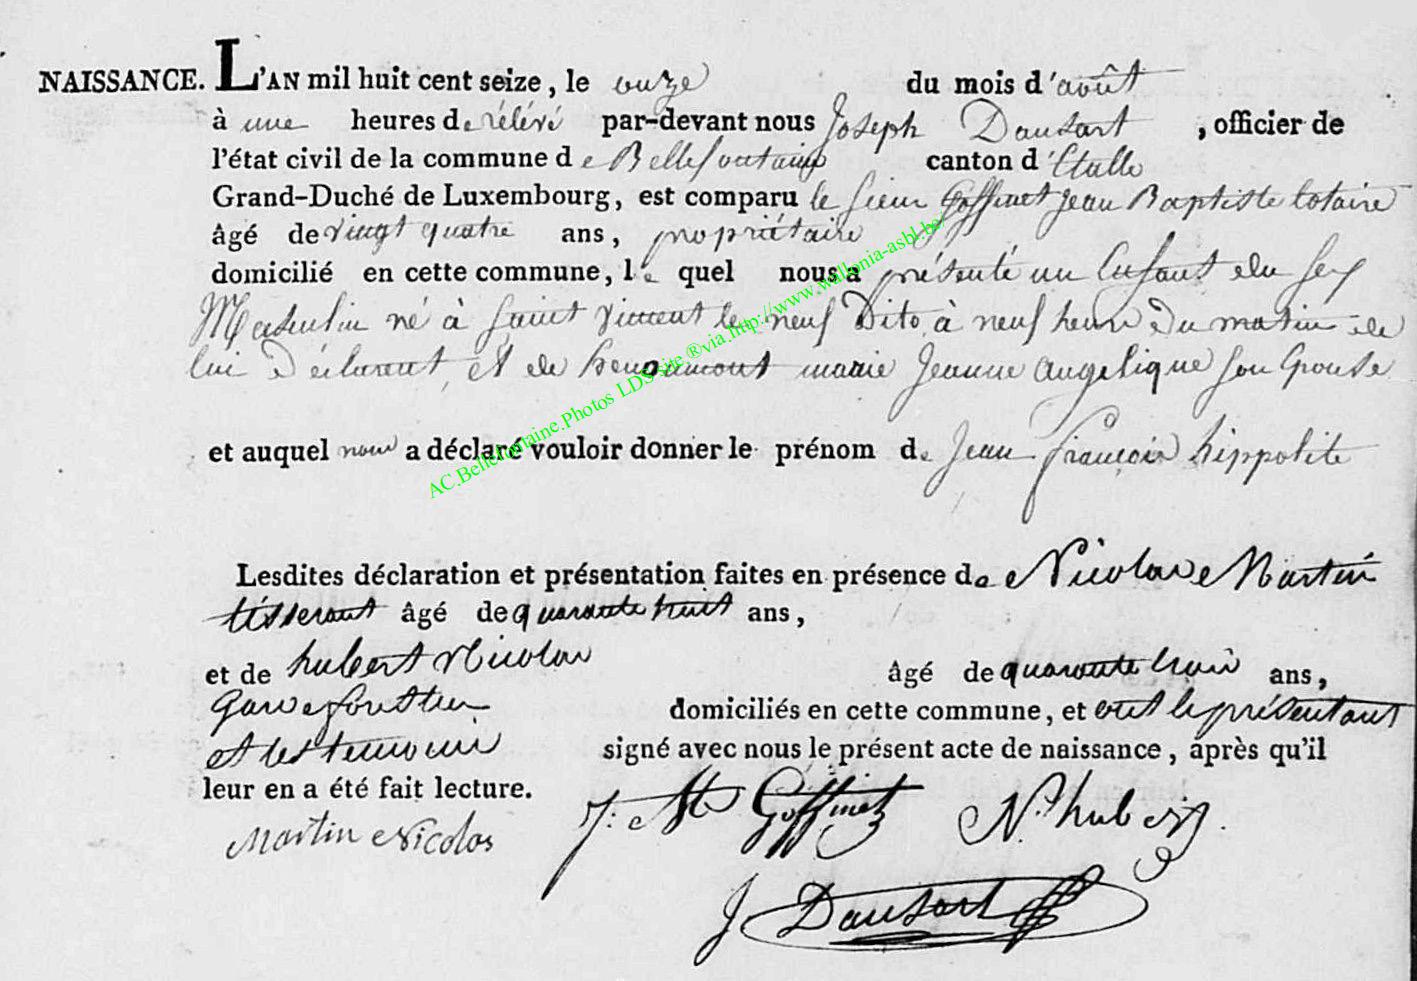 NAISSANCE. L'AN mil huit cent seize, le onze du mois d'août
à une heures de rélévé par-devant nous Joseph Dausart, officier de
l'état civil de la commune de Bellefontaine canton d'Etalle
Grand-Duché de Luxembourg, est comparu le sieur Goffinet Jean Baptiste
âgé de vingt quatre ans, propriétaire
domicilié en cette commune, le quel nous a présenté un Enfant du sex
Masculin né à Saint Vincent le neuf Dito à neuf heure du matin de
lui Déclarant, et de marie Jeanne Angelique son Epouse
et auquel nous a déclaré vouloir donner le prénom de Jean françois hippolite
Lesdites déclaration et présentation faites en présence de Nicolas Martin
tisserant âgé de quarante huit ans,
et de hubert Nicolas âgé de quarante trois ans,
Garde forétier domiciliés en cette commune, et ont le présentant
et les temoins signé avec nous le présent acte de naissance, après qu'il
leur en a été fait lecture.
Martin Nicolas J: Bte Goffinet N. hubert
J Dausart
AC.Bellefontaine.Photos LDS site ®via.http://www.wallonia-asbl.be/